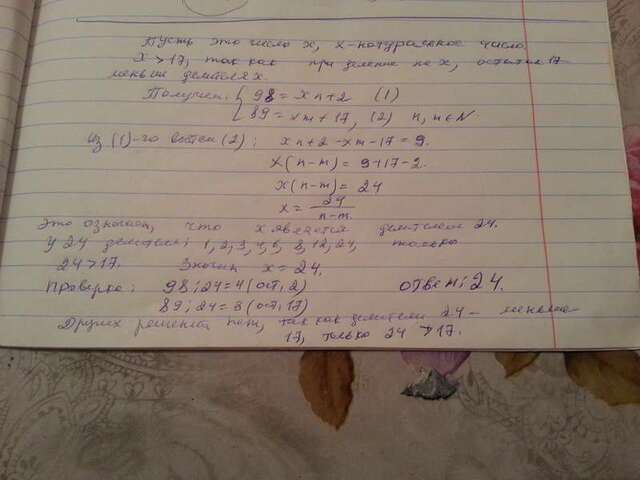 Пусть это число x, x - натуральное число.
x > 17, так как при делении на x, остаток 17
меньше делителя x.
Получаем: { 98 = xn + 2 (1)
89 = xm + 17, (2) n, m ∈ N.
Из (1)-го вычтем (2): xn + 2 - xm - 17 = 9.
x(n-m) = 9+17-2.
x(n-m) = 24
x = 24/(n-m).
Это означает, что x является делителем 24.
У 24 делители: 1, 2, 3, 4, 6, 8, 12, 24, только
24 > 17. Значит x = 24.
Проверка: 98 : 24 = 4 (ост. 2) Ответ: 24.
89 : 24 = 3 (ост. 17)
Других решений нет, так как делители 24 - меньше
17, только 24 > 17.